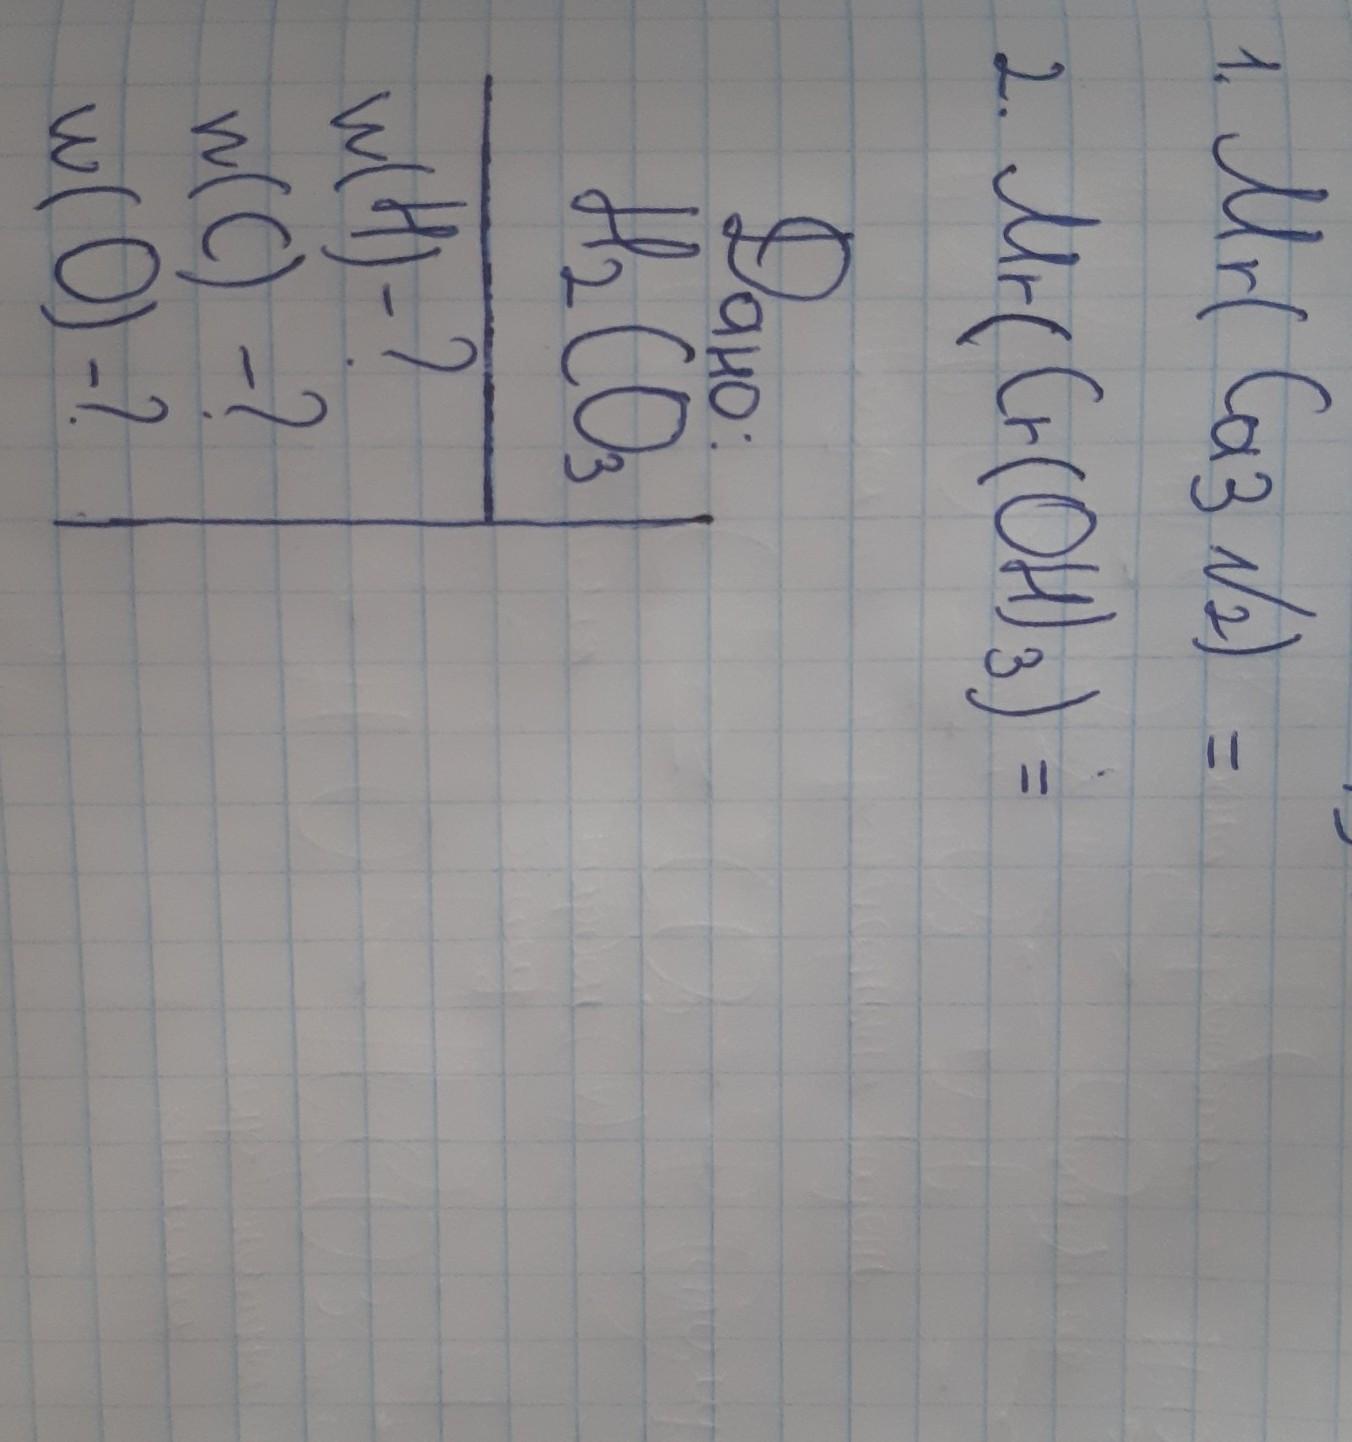 1. Mr(Ca3N2) =
2. Mr(Cr(OH)3) =
Дано:
H2CO3
w(H) - ?
w(C) - ?
w(O) - ?